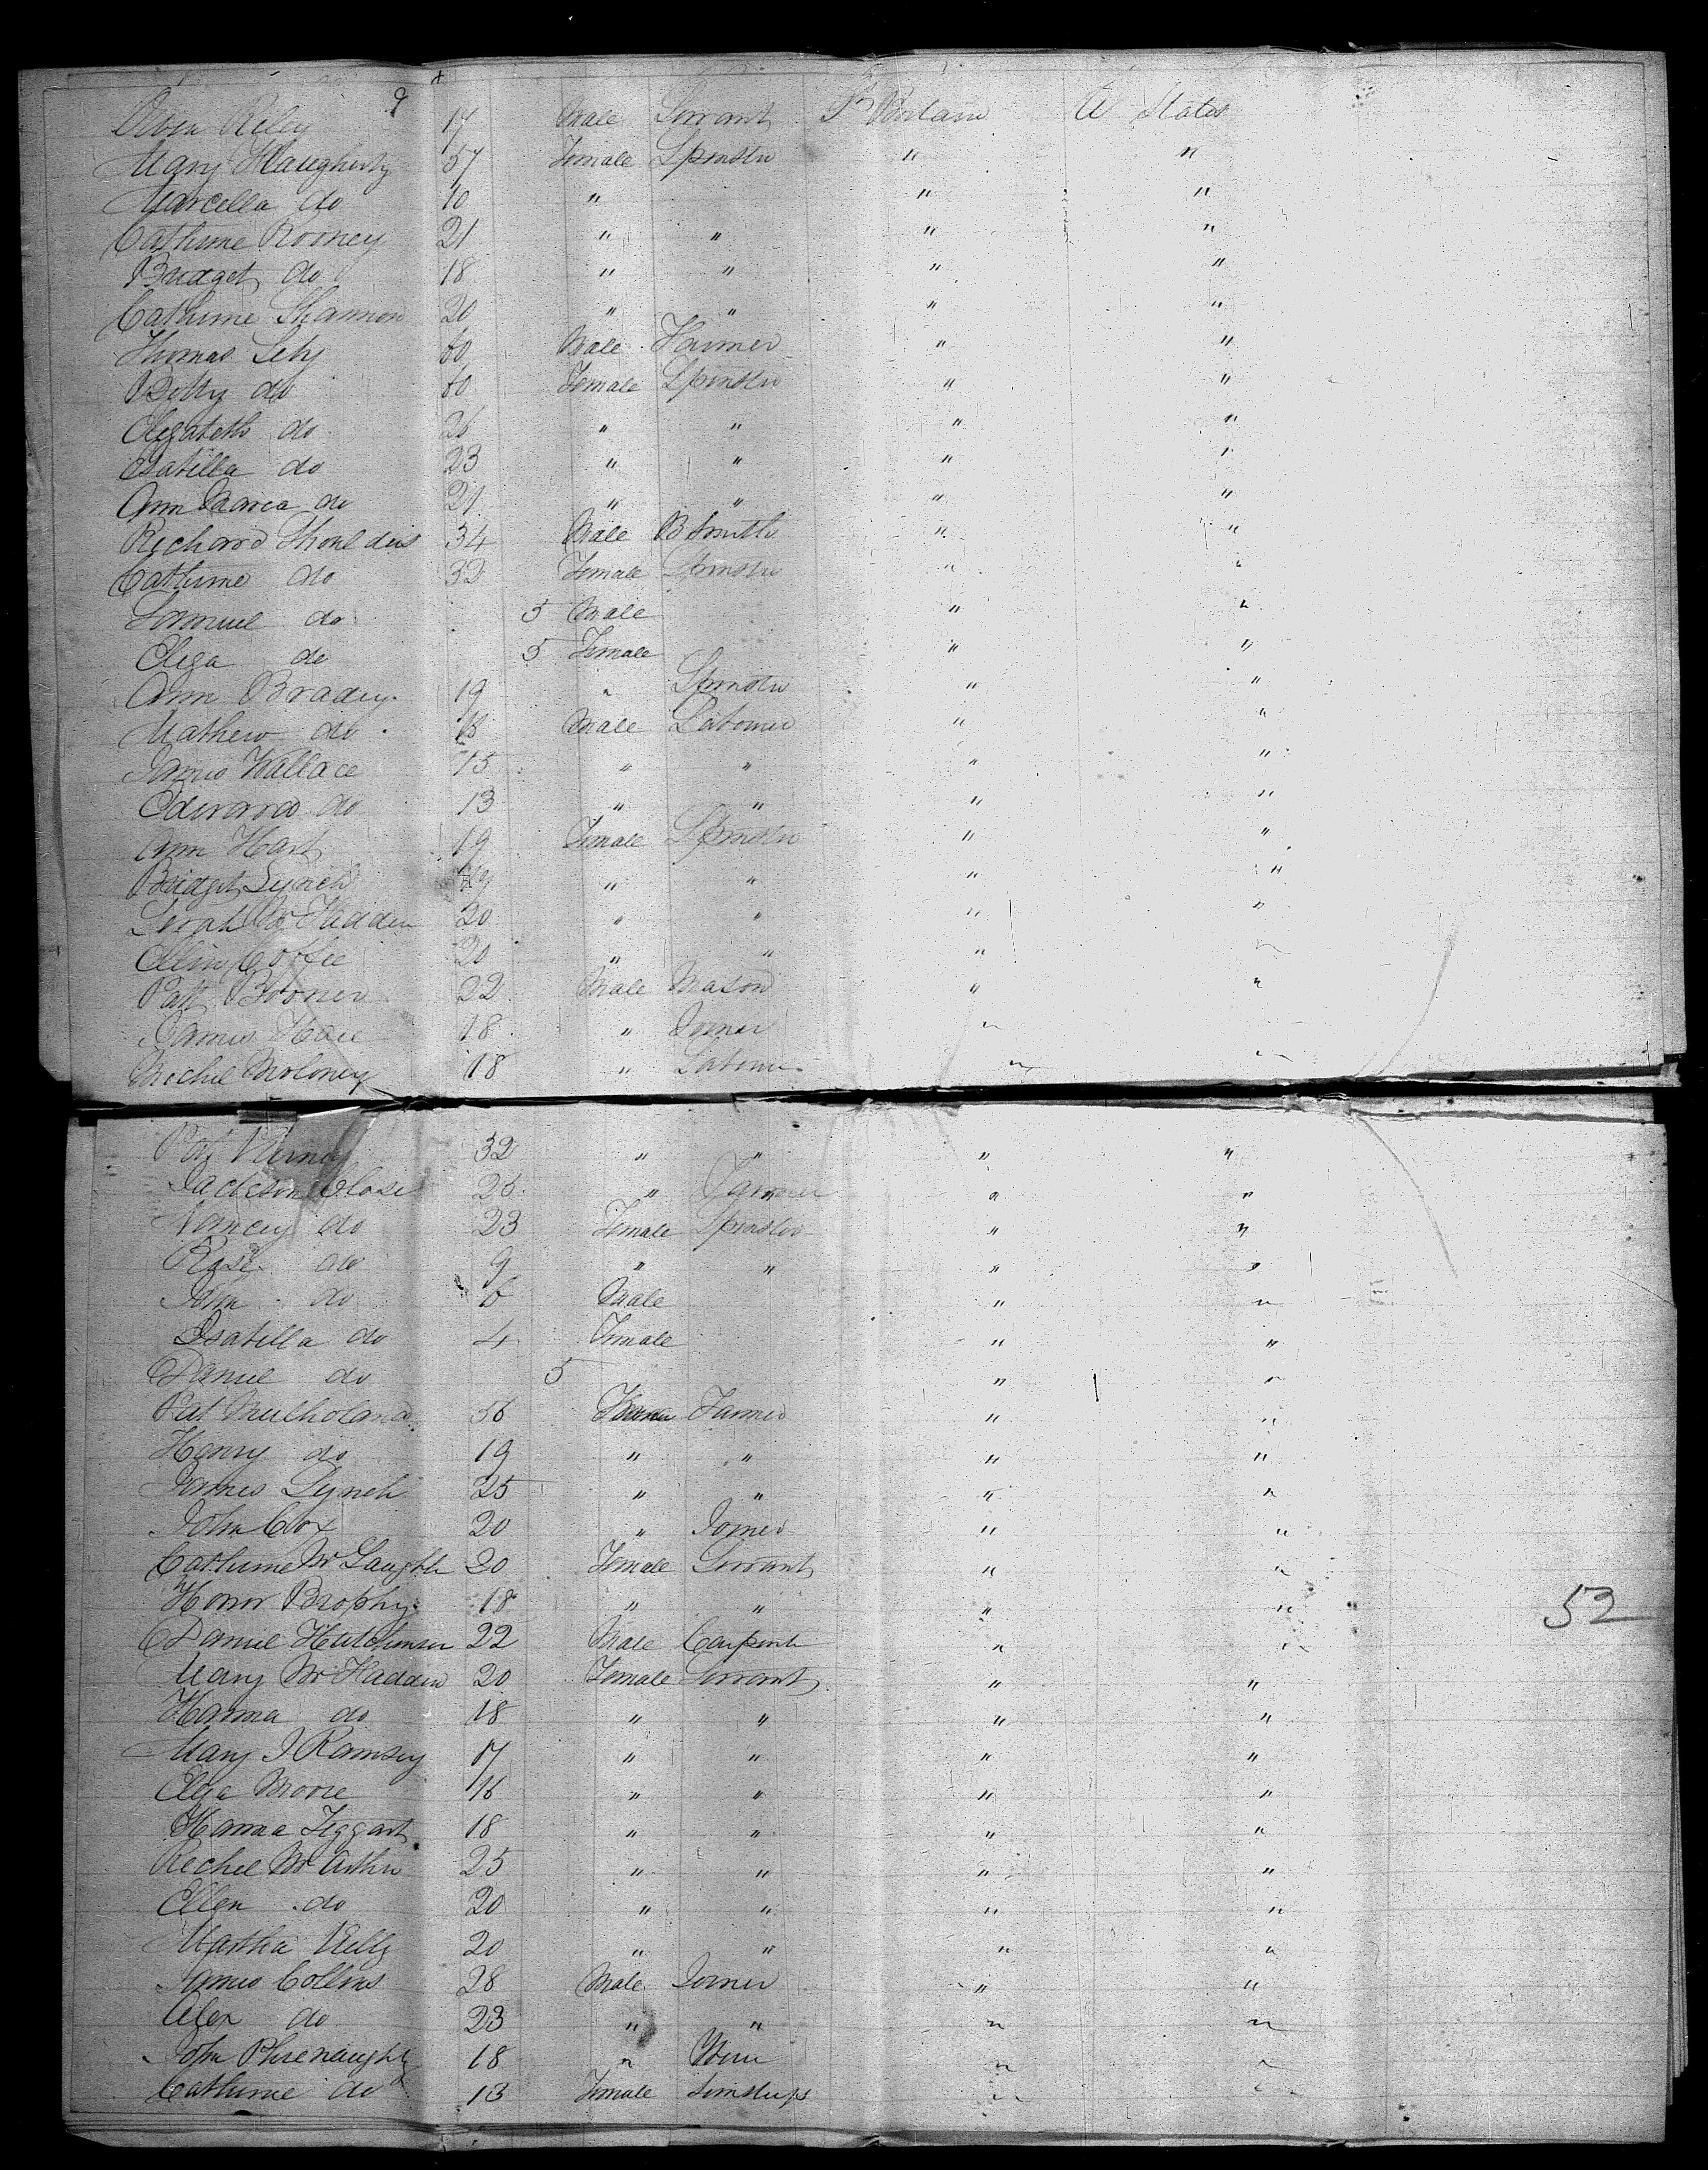 9
Riley 17 Male Servant Gt Britain U States
Mary Haugherty 57 Female Spinster " "
Marcella do 10 " " "
Catherine Rooney 21 " " " "
Bridget do 18 " " " "
Catherine Shannon 20 " " " "
Thomas 60 Male Farmer " "
Betty do 60 Female Spinster " "
Elizabeth do 26 " " " "
Isabella do 23 " " " "
Ann Maria do 21 " " " "
Richard Shoulders 34 Male B Smith " "
Catherine do 32 Female Spinster " "
Samuel do 5 Male " "
Eliza do 5 Female " "
Ann Bradey 19 " Spinster " "
Mathew do 18 Male Labourer " "
James Wallace 15 " " " "
Edward do 13 " " " "
Ann Hart 19 Female Spinster " "
Bridget Lynch 19 " " " "
Sarah McFadden 20 " " " "
Ellin Coffee 20 " " " "
Patt 22 Male Mason " "
James 18 " Joiner " "
Michel Moloney 18 " Labourer " "
Pat 32 " " " "
Jackson Close 25 " Farmer " "
Nancey do 23 Female Spinster " "
Rose do 9 " " " "
John do 6 Male " "
Isabella do 4 Female " "
Daniel do 5 " "
Pat Mulholand 36 Farmer " "
Henry do 19 " " " "
James Lynch 25 " " " "
John Cox 20 " Joiner " "
Catherine McLaughlin 20 Female Servant " "
Honor Brophy 18 " " " "
52
Daniel Hutchinson 22 Male Carpenter " "
Mary McFadden 20 Female Servant " "
Hanna do 18 " " " "
Mary J Ramsey 17 " " " "
Eliza Moore 16 " " " "
Hanna Teggart 18 " " " "
Rechel McArthur 25 " " " "
Ellen do 20 " " " "
Martha Kelly 20 " " " "
James Collins 28 Male Joiner " "
Alex do 23 " " " "
John 18 " " "
Catherine do 13 Female " "